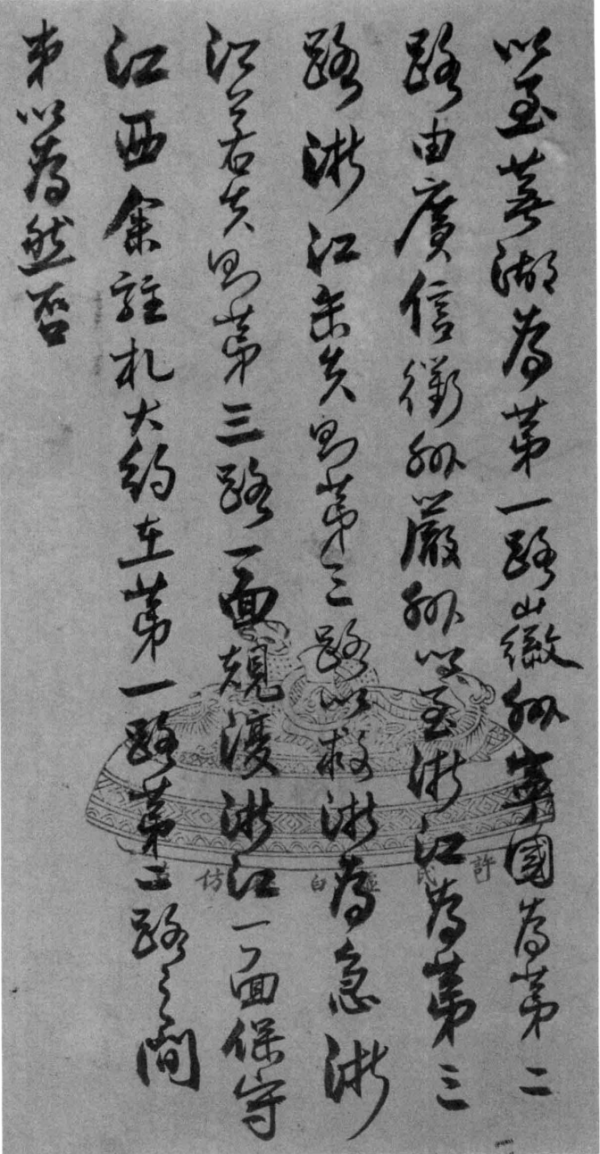 以至蕪湖為第一路山徽州寧國為第二
路由廣信衢州嚴州以至浙江為第三
路浙江未失則第三路以救浙為急浙
江若失則第三路一面規復浙江一面保守
江西余駐札大約在第一路第二路之間
弟以為然否
許氏 白 仿